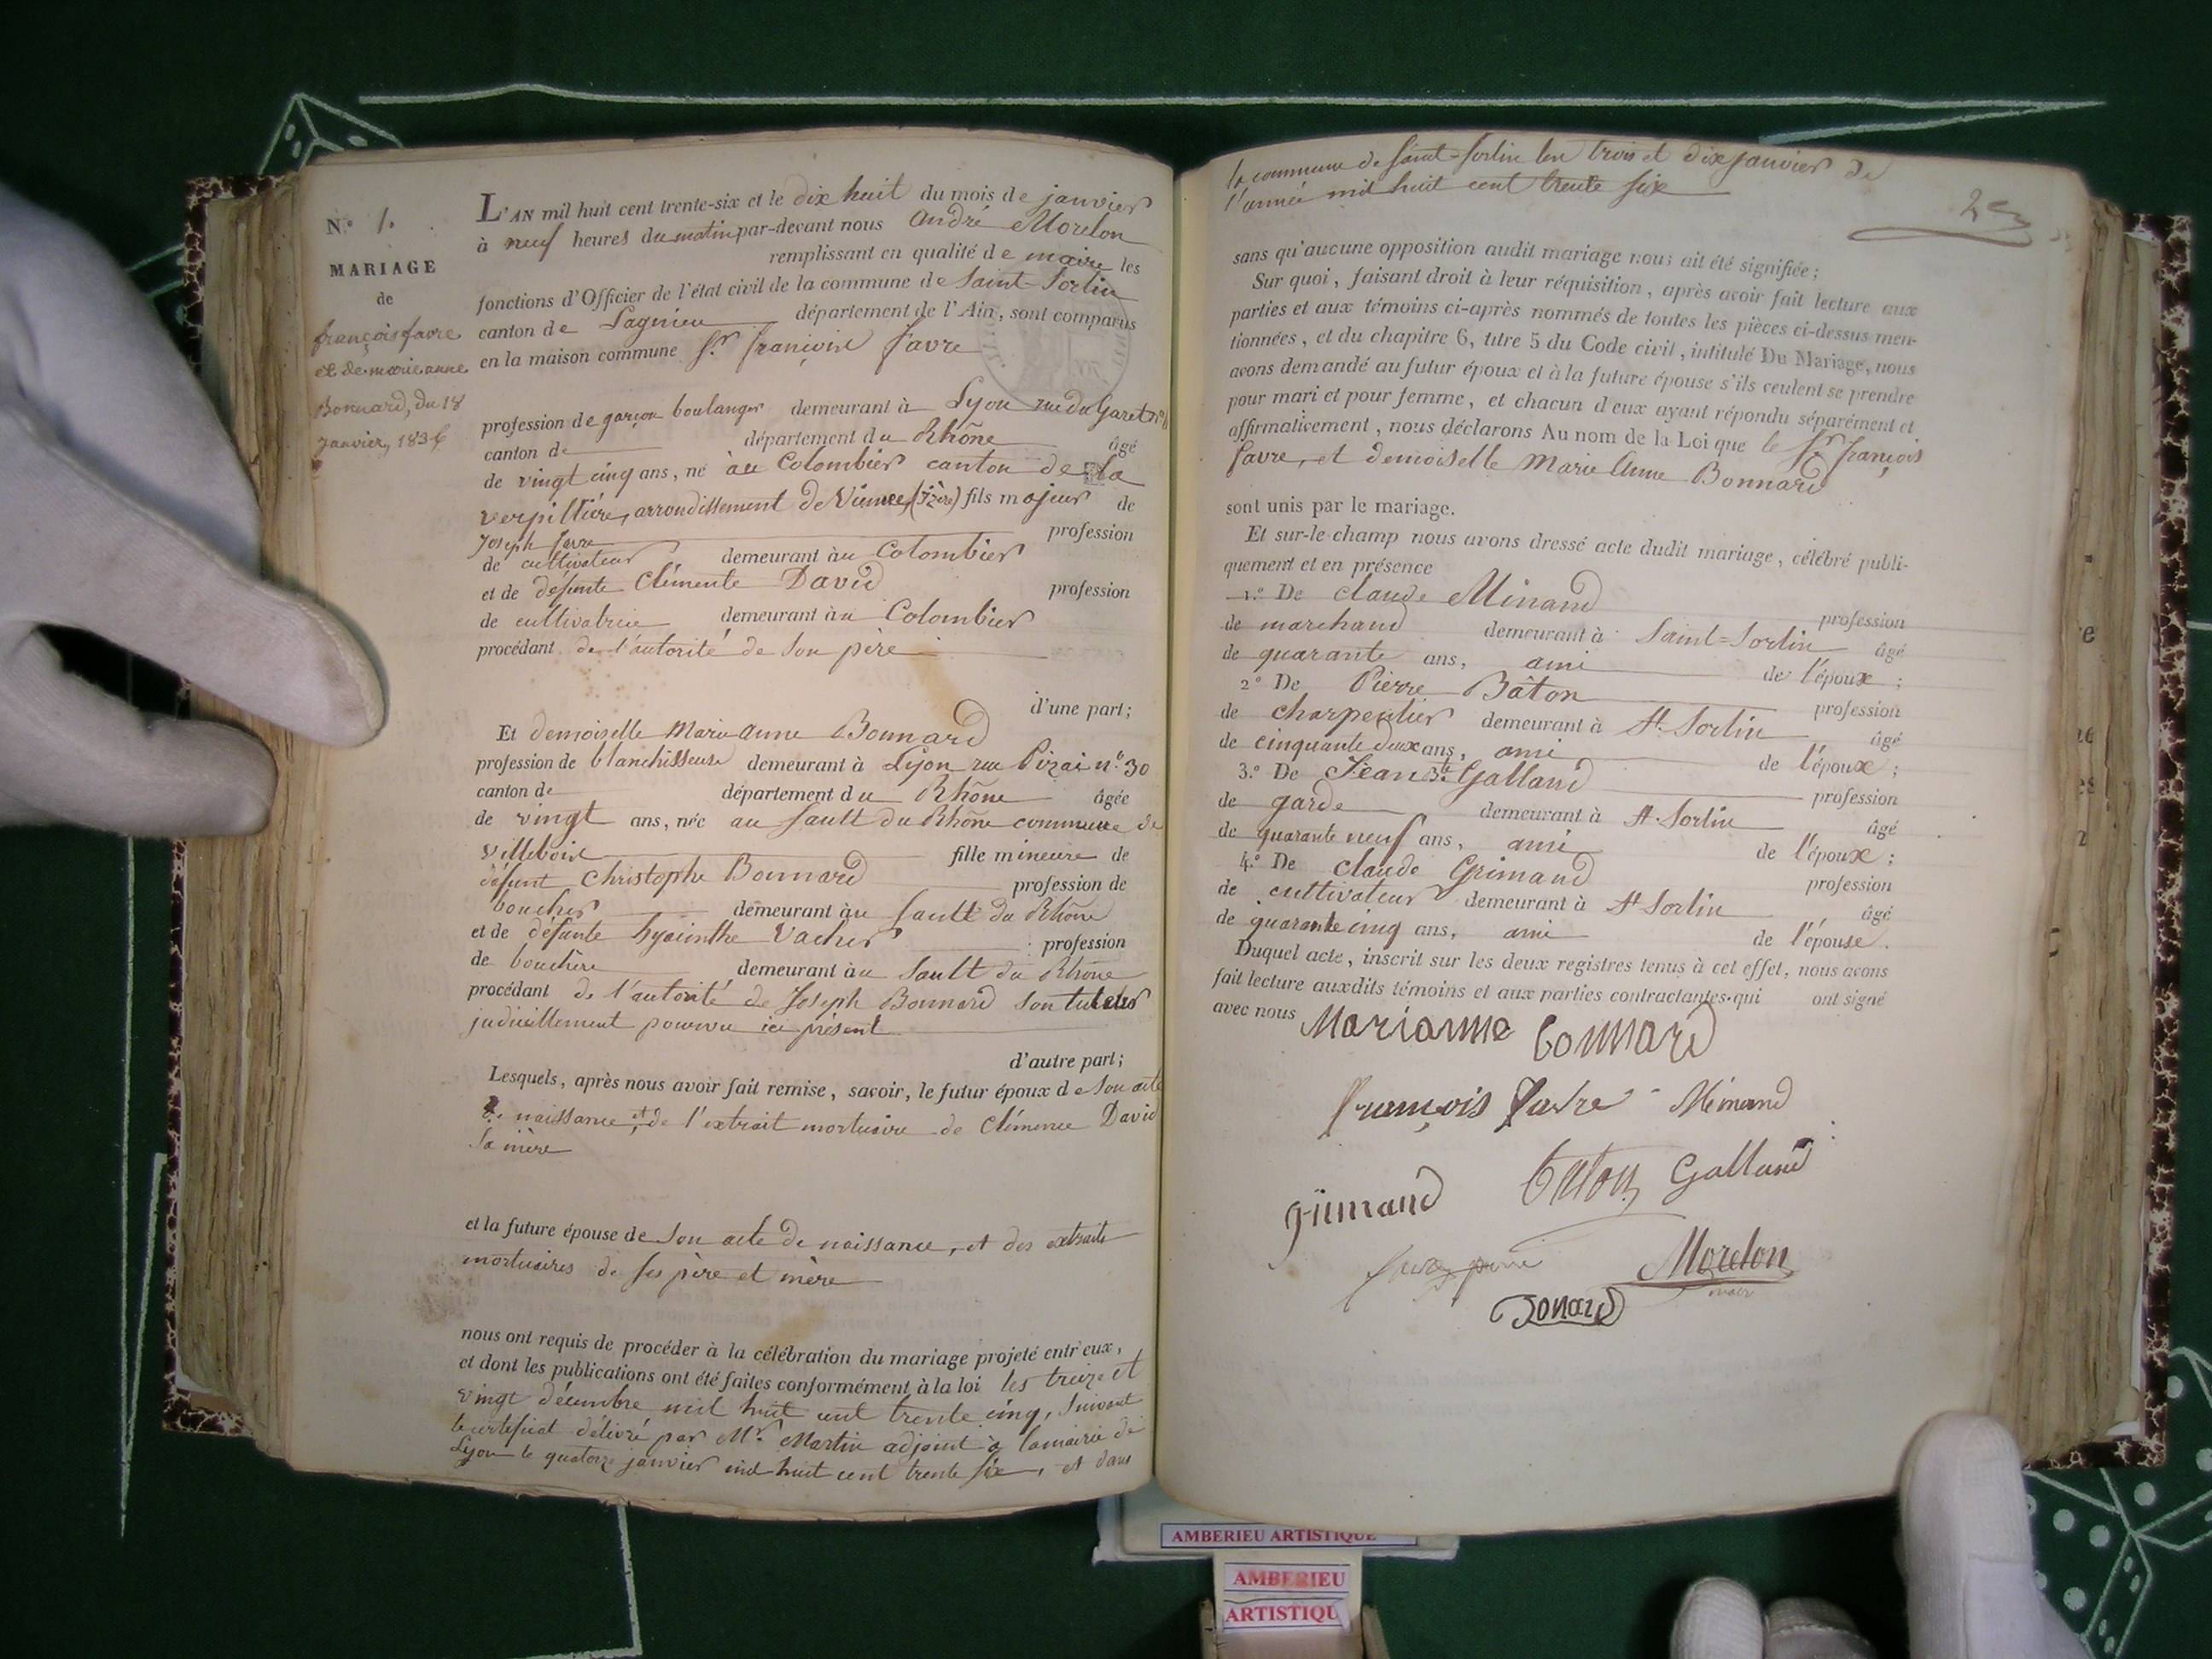 N.° 1.
MARIAGE
de
françois favre
et de marie anne
Bonnard, du 18
Janvier, 1836
L'AN mil huit cent trente-six et le dix huit du mois de janvier
à neuf heures du matin par-devant nous André Morelon
remplissant en qualité de maire les
fonctions d'Officier de l'état civil de la commune de Saint-Sorlin
canton de Lagnieu département de l'Ain, sont comparus
en la maison commune Sr. françois favre
profession de garçon boulanger demeurant à Lyon rue du Garet
canton de département du Rhône âgé
de vingt cinq ans, né au Colombier canton de la
verpillière, arrondissement de Vienne (Isère) fils majeur de
Joseph favre profession
de cultivateur demeurant au Colombier
et de défunte Clémente David profession
de cultivatrice demeurant au Colombier
procédant de l'autorité de Son père
d'une part;
Et demoiselle Marie anne Bonnard
profession de blanchisseuse demeurant à Lyon rue Pizai n.° 30
canton de département du Rhône âgée
de vingt ans, née au Sault du Rhône commune de
villebois fille mineure de
défunt Christophe Bonnard profession de
boucher demeurant au Sault du Rhône
et de défunte hyacinthe Vacher profession
de bouchère demeurant au Sault du Rhône
procédant de l'autorité de Joseph Bonnard Son tuteur
judiciellement pourvu ici présent
d'autre part;
Lesquels, après nous avoir fait remise, savoir, le futur époux de Son acte
de naissance, et de l'extrait mortuaire de Clémence David
Sa mère
et la future épouse de Son acte de naissance, et des extraits
mortuaires de Ses père et mère
nous ont requis de procéder à la célébration du mariage projeté entr'eux,
et dont les publications ont été faites conformément à la loi les treize et
vingt décembre mil huit cent trente cinq, Suivant
le certificat délivré par Mr. Martin adjoint à la mairie de
Lyon le quatorze janvier mil huit cent trente Six, et dans
la commune de Saint-Sorlin les trois et dix janvier de
l'année mil huit cent trente six
sans qu'aucune opposition audit mariage nous ait été signifiée;
Sur quoi, faisant droit à leur réquisition, après avoir fait lecture aux
parties et aux témoins ci-après nommés de toutes les pièces ci-dessus men-
tionnées, et du chapitre 6, titre 5 du Code civil, intitulé Du Mariage, nous
avons demandé au futur époux et à la future épouse s'ils veulent se prendre
pour mari et pour femme, et chacun d'eux ayant répondu séparément et
affirmativement, nous déclarons Au nom de la Loi que le Sr. françois
favre, et demoiselle Marie Anne Bonnard
sont unis par le mariage.
Et sur-le-champ nous avons dressé acte dudit mariage, célébré publi-
quement et en présence
1.° De Claude Minand profession
de marchand demeurant à Saint-Sorlin âgé
de quarante ans, ami de l'époux;
2.° De Pierre Bâton profession
de charpentier demeurant à St. Sorlin âgé
de cinquante deux ans, ami de l'époux;
3.° De Jean Bte Galland profession
de garde demeurant à St. Sorlin âgé
de quarante neuf ans, ami de l'époux;
4.° De Claude Grimand profession
de cultivateur demeurant à St Sorlin âgé
de quarante cinq ans, ami de l'épouse.
Duquel acte, inscrit sur les deux registres tenus à cet effet, nous avons
fait lecture auxdits témoins et aux parties contractantes qui ont signé
avec nous Marianne bonnard
françois favre Minand
grimand Baton Galland
favre père Morelon
maire
Bonard
AMBERIEU ARTISTIQUE
AMBERIEU
ARTISTIQU